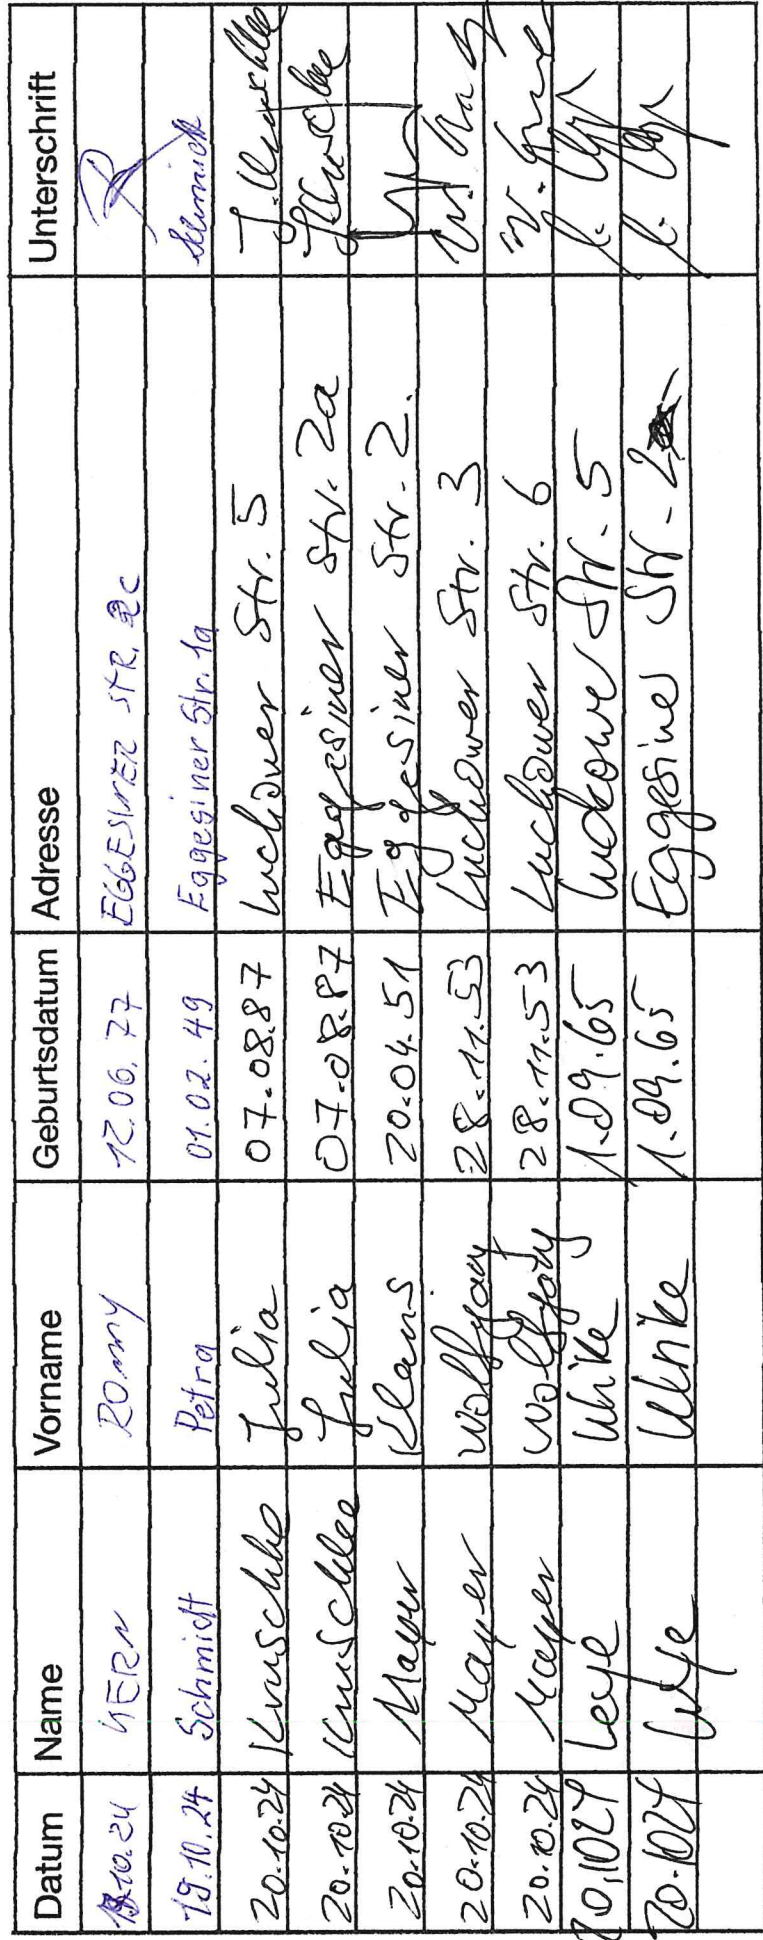 Datum Name Vorname Geburtsdatum Adresse Unterschrift
19.10.24 KERN ROMMY 12.06.77 EGGESINER STR. 2c
19.10.24 Schmidt Petra 01.02.49 Eggesiner Str. 1a Schmidt
20.10.24 Knuschke Julia 07.08.87 Luckower Str. 5 J. Knuschke
20.10.24 Knuschke Julia 07.08.87 Eggesiner Str. 2a J. Knuschke
20.10.24 Mayer Klaus 20.04.51 Eggesiner Str. 2.
20.10.24 Mayer Wolfgang 28.11.53 Luckower Str. 3
20.10.24 Mayer Wolfgang 28.11.53 Luckower Str. 6
20.1024 Leye Ulrike 1.09.65 Luckower Str. 5
20.1024 Leye Ulrike 1.09.65 Eggesiner Str. 2